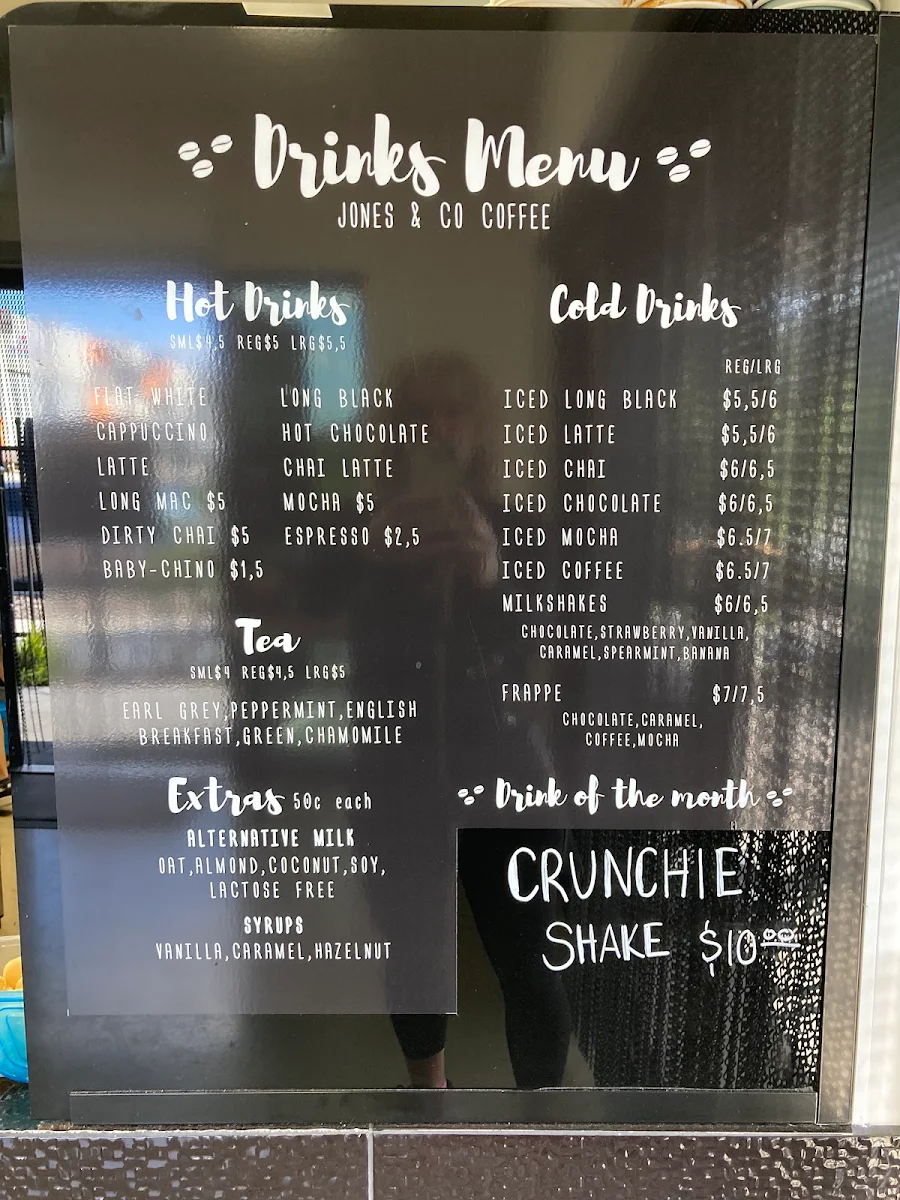 Drinks Menu
JONES & CO COFFEE
Hot Drinks
SML$4,5 REG$5 LRG$5,5
FLAT WHITE LONG BLACK
CAPPUCCINO HOT CHOCOLATE
LATTE CHAI LATTE
LONG MAC $5 MOCHA $5
DIRTY CHAI $5 ESPRESSO $2,5
BABY-CHINO $1,5
Tea
SML$4 REG$4,5 LRG$5
EARL GREY,PEPPERMINT,ENGLISH
BREAKFAST,GREEN,CHAMOMILE
Extras 50c each
ALTERNATIVE MILK
OAT,ALMOND,COCONUT,SOY,
LACTOSE FREE
SYRUPS
VANILLA,CARAMEL,HAZELNUT
Cold Drinks
REG/LRG
ICED LONG BLACK $5,5/6
ICED LATTE $5,5/6
ICED CHAI $6/6,5
ICED CHOCOLATE $6/6,5
ICED MOCHA $6.5/7
ICED COFFEE $6.5/7
MILKSHAKES $6/6,5
CHOCOLATE,STRAWBERRY,VANILLA,
CARAMEL,SPEARMINT,BANANA
FRAPPE $7/7,5
CHOCOLATE,CARAMEL,
COFFEE,MOCHA
Drink of the month
CRUNCHIE
SHAKE $10.00